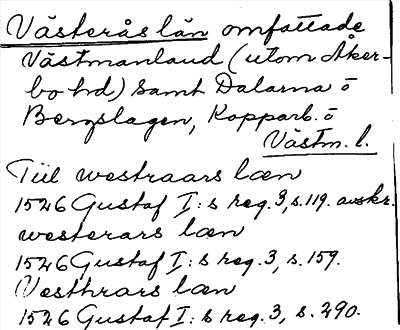 Västerås län omfattade
Västmanland (utom Åker-
bo hd) samt Dalarna o
Bergslagen, Kopparb. o
Västm. l.
Till westraars læn
1526 Gustaf I:s reg. 3, s. 119. avskr.
westerars læn
1526 Gustaf I:s reg. 3, s. 159.
Vesthrars læn
1526 Gustaf I:s reg. 3, s. 290.